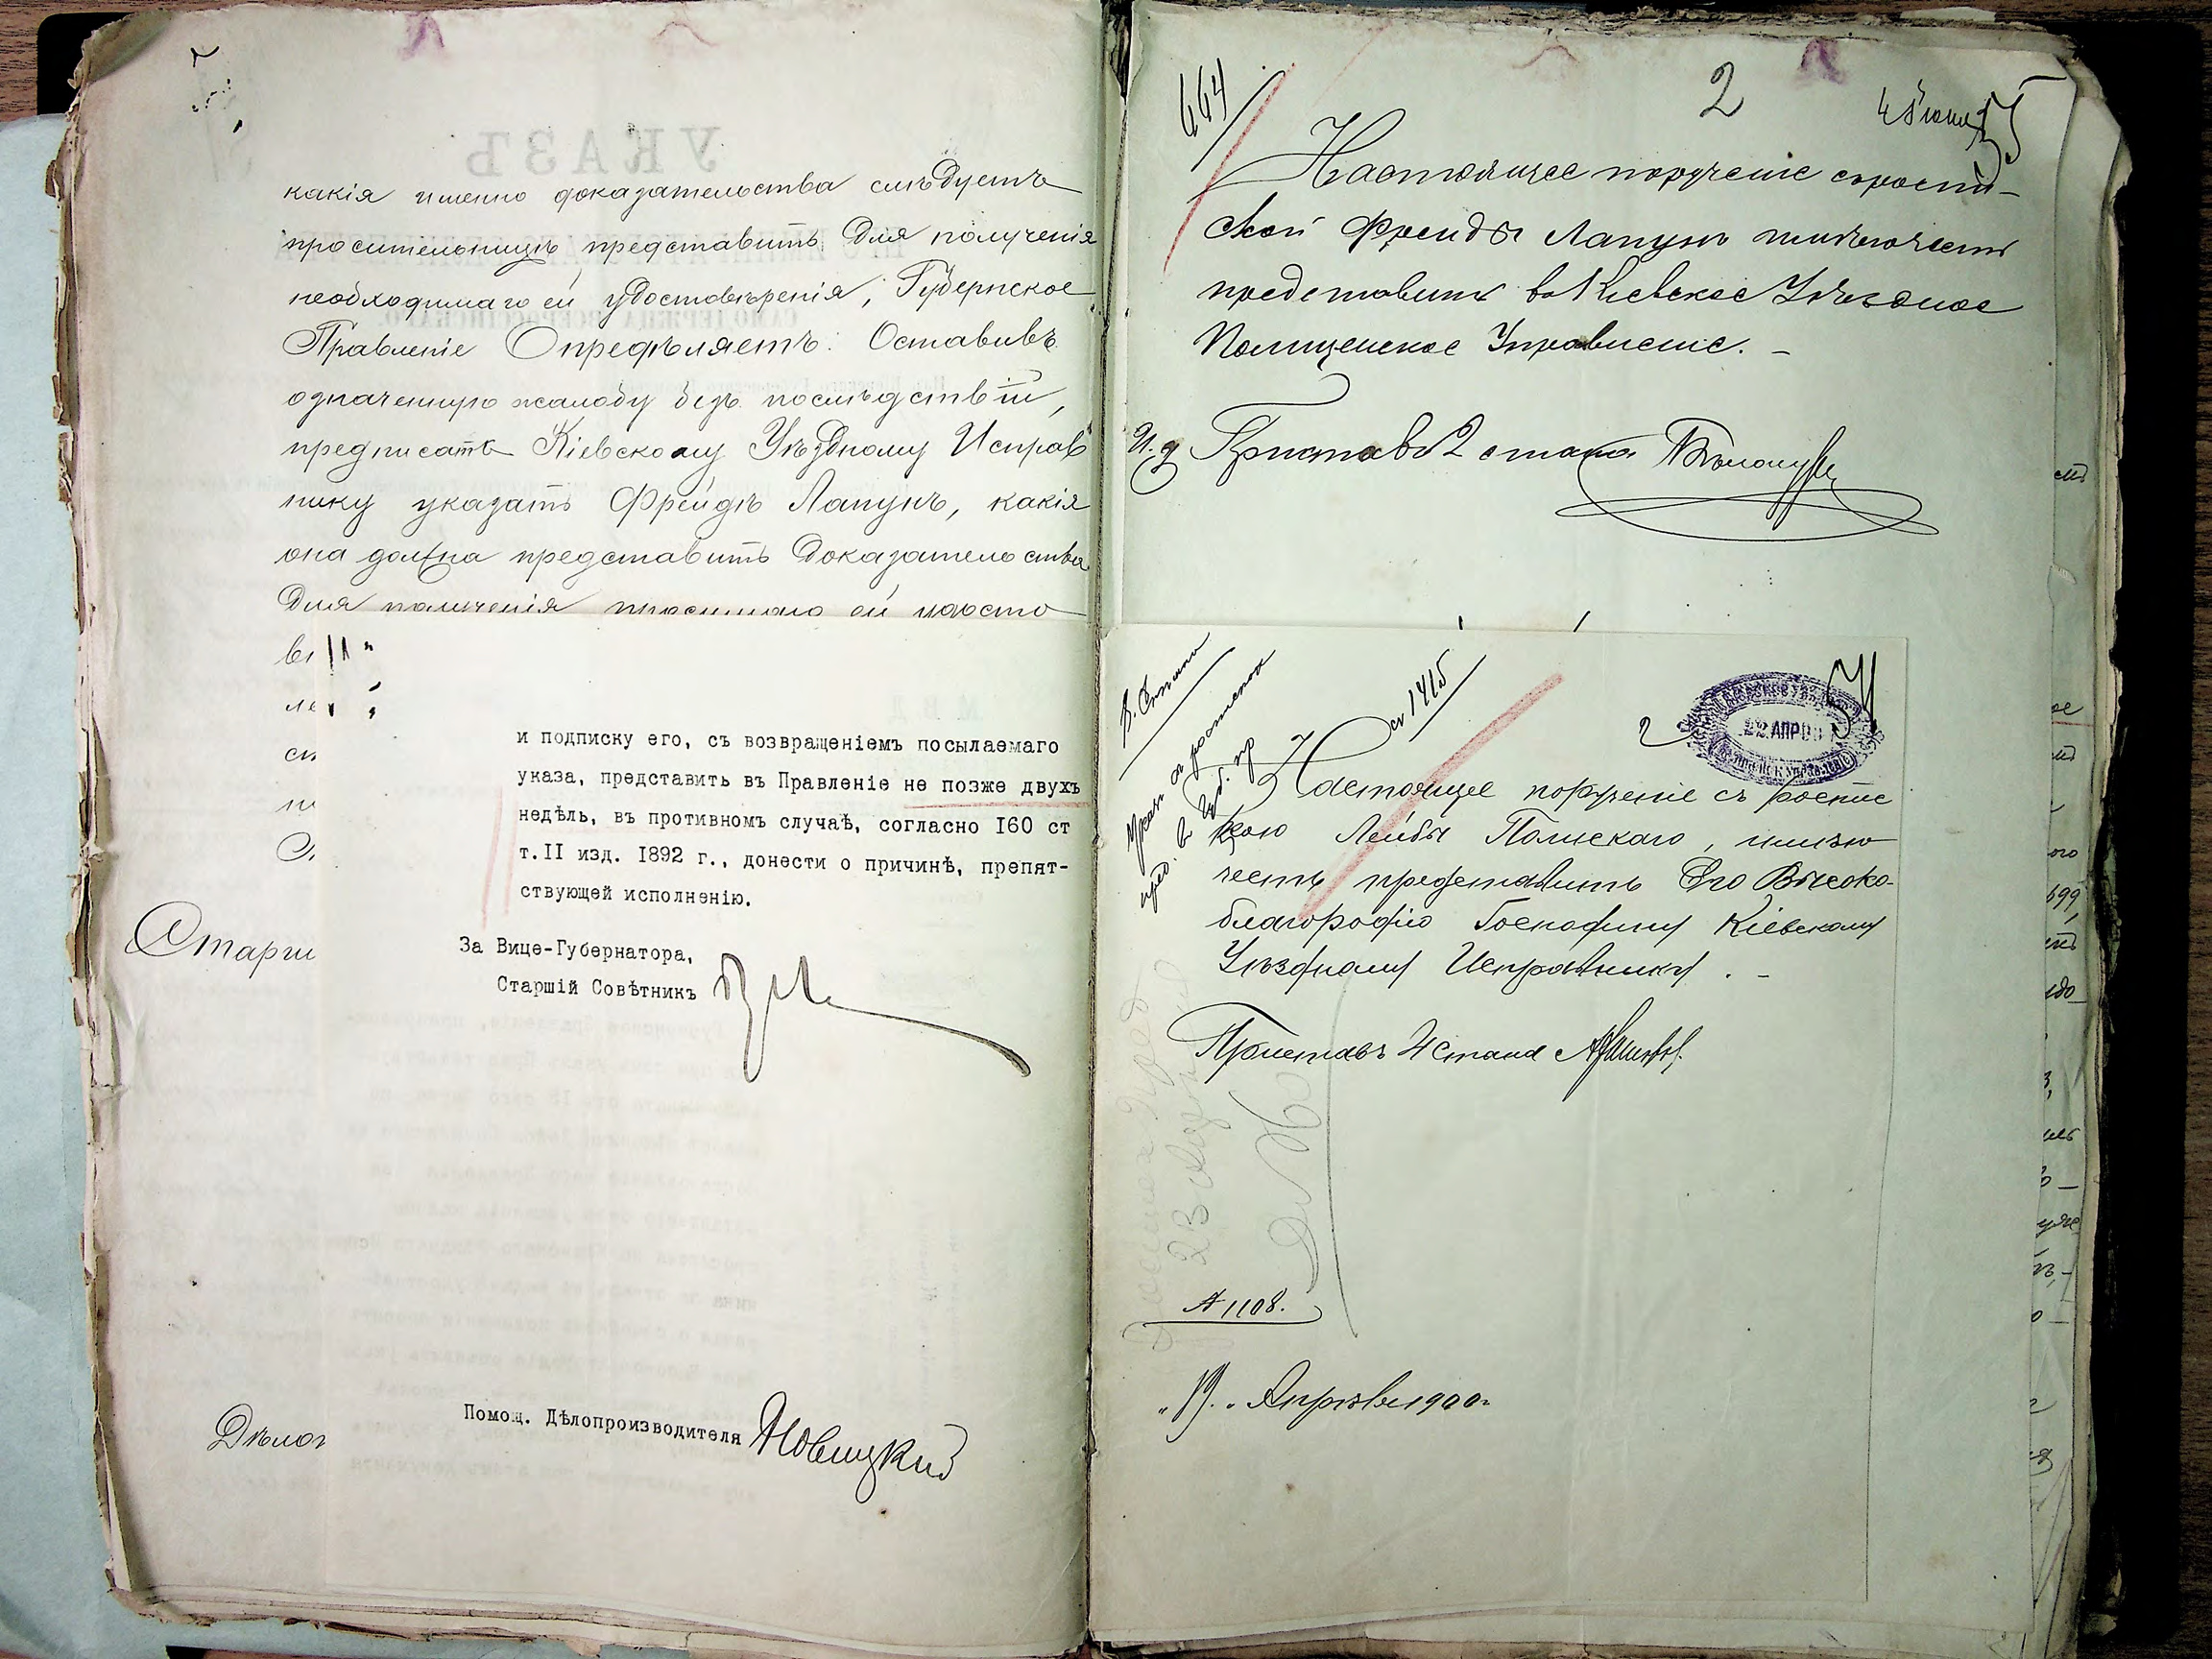 какія именно доказательства слѣдуетъ
просительницѣ представить для полученія
необходимаго ей удостовѣренія, Губернское
Правленіе Опредѣляетъ: Оставивъ
означенную жалобу безъ послѣдствій,
предписать Кіевскому Уѣздному Исправ
нику указать Фрейдѣ Лапунъ, какія
она должна представить доказательства
для полученія просимаго ей удосто
и подписку его, съ возвращеніемъ посылаемаго
указа, представить въ Правленіе не позже двухъ
недѣль, въ противномъ случаѣ, согласно 160 ст
т.II изд. 1892 г., донести о причинѣ, препят-
ствующей исполненію.
За Вице-Губернатора,
Старшій Совѣтникъ
Помощ. Дѣлопроизводителя Новицкій
Старш
Дѣлоп
664
2
35
Настоящее порученіе съ роспи-
ской Фрейды Лапунъ имѣю честь
представить въ Кіевское Уѣздное
Полицейское Управленіе. –
И. д. Приставъ 2 стана
ст 1415
2
34
22 АПР 900
Настоящее порученіе съ роспис
кою Лейбы Полискаго, имѣю
честь представить Его Высоко-
благородію Господину Кіевскому
Уѣздному Исправнику. –
Приставъ 4 стана
№ 1108.
„19„ Апрѣля 1900 г